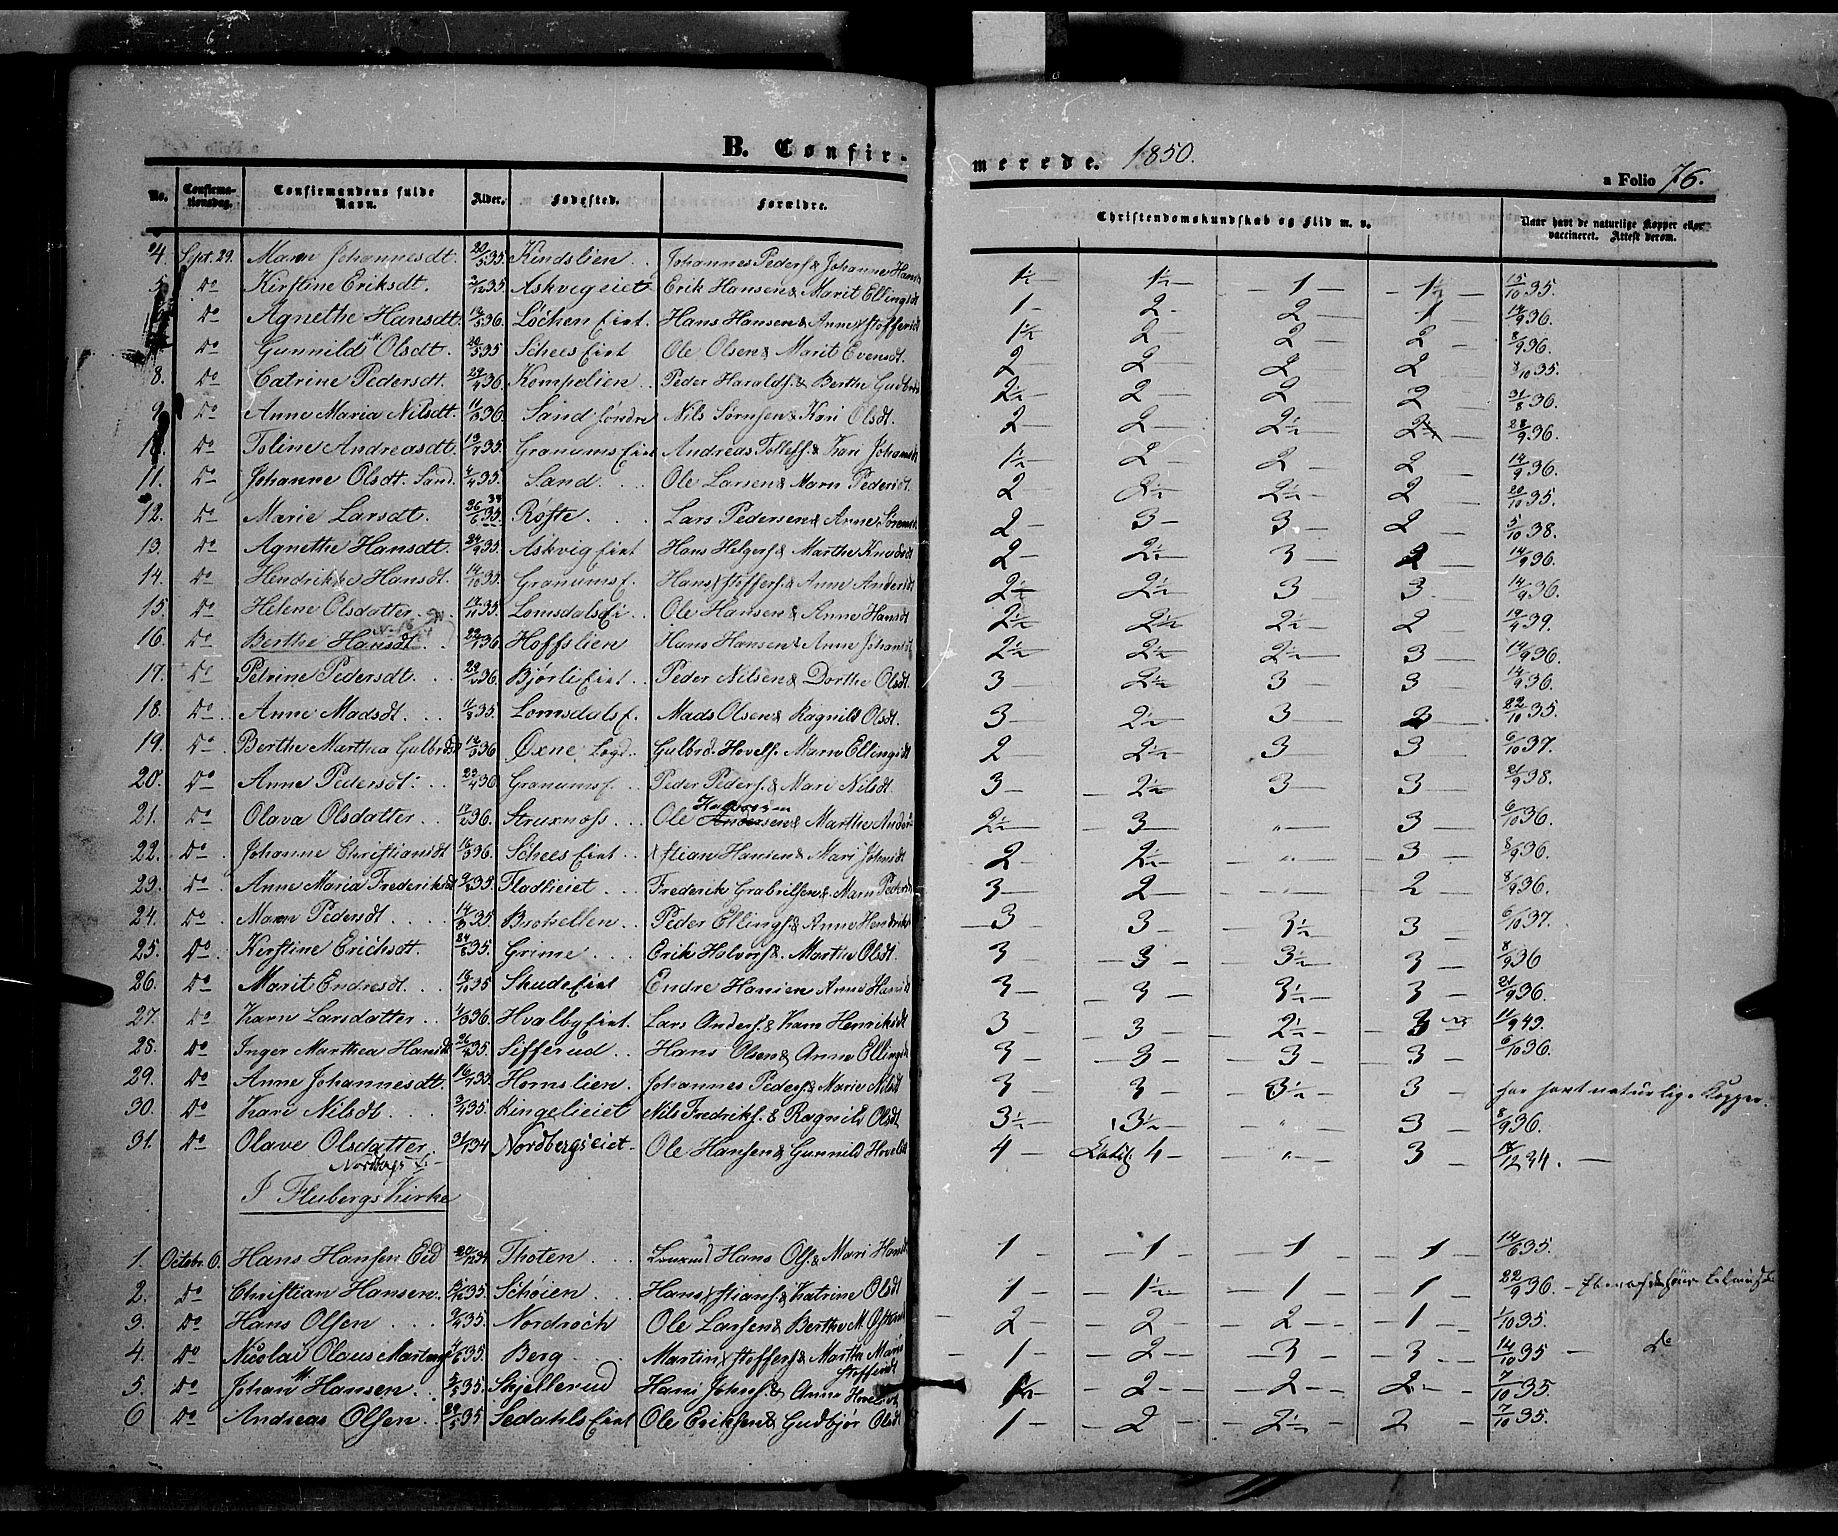 B. Confir-
merede. 1850.
a Folio 76.
No. Confirmationsdag. Confirmandens fulde Navn. Alder. Fødested. Forældre. Christendomskundskab og Flid m. v. Naar havt de naturlige Kopper eller vaccineret. Attest derom.
4. Sept. 29. Maren Johannesdt. 35. Kindslien Johannes Peders. & Johanne Hansd 1½ 1½ 1 1½ 15/10 35.
5. Do Kirstine Eriksdt. 35. Askvigeiet Erik Hansen & Marit Ellingsdt 1 2 2 1 14/9 36.
Do Agnethe Hansdt. 36. Løchen Eiet. Hans Hansen & Anne Xstoffersdt 1½ 2 2 2 8/9 36.
Do Gunnild Olsdt. 35 Schees Eiet Ole Olsen & Marit Evensdt. 2 2 2 2 8/10 35.
8. Do Catrine Pedersdt. 36. Kompelien Peder Haralds. & Berthe Gudbrds 2½ 2 2 2 31/8 36.
9. Do Anne Maria Nilsdt. 36. Sand søndre Nils Sørensen & Kari Olsdt 2 2 2½ 28/9 36.
10. Do Toline Andreasdt 35. Granums Eiet Andreas Tollefs. & Kari Johansdt 1½ 2 2 2 14/9 36.
11. Do Johanne Olsdt. Sand. 35. Sand. Ole Larsen & Maren Pedersdt. 2 2½ 2½ 2 20/10 35.
12. Do Marie Larsdt. 35. Røste. Lars Pedersen & Anne Sørensdt 2 3 3 2 5/10 38.
13. Do Agnethe Hansdt. 24/9 35. Askvig Eiet Hans Helgers. & Marthe Knudsdt 2 2½ 3 2 14/9 36.
14. Do Hendrikke Hansdt. 35. Granums E. Hans Xstoffers. & Anne Andersdt 2½ 2½ 3 3 14/9 36.
15. Do Helene Olsdatter 35. Lomsdals Ei Ole Hansen & Anne Hansdt 2½ 2½ 2½ 2 19/4 39.
16. Do Berthe Hansdt. 36. Hoffslien Hans Hansen & Anne Johansdt 2½ 2½ 2½ 3 14/9 36.
17. Do Petrine Pedersdt. 36. Bjørli Eiet. Peder Nilsen & Dorthe Olsdt. 3 2½ 3 3 14/9 36.
18. Do Anne Madsdt. 35. Lomsdals E. Mads Olsen & Ragnild Olsdt. 3 2½ 3 3 22/10 35.
19. Do Berthe Marthea Gulbrdsdt 36 Oxne Gulbrd. Hovels. Maren Ellingsdt 2 2½ 3 3 6/10 37.
20. Do Anne Pedersdt. 36. Granums E. Peder Peders. & Mari Nilsdt. 3 2½ 3 3 21/9 38.
21. Do Olava Olsdatter 36. Struxnoss Ole Andersen & Marthe Anders 2½ 3 " 3 6/10 36.
22. Do Johanne Christiansdt 36. Schees Eiet Xstian Hansen & Mari Johnsdt 2 2½ " 3 8/9 36.
23. Do Anne Maria Frederiksdt 35. Fladlieiet Frederik Grabrielsen & Maren Pedersdt 3 2 " 2 8/9 36.
24. Do Maren Pedersdt. 35. Brotsellen Peder Ellings. & Anne Hendriks 3 3 3½ 3 6/10 37.
25. Do Kerstine Ericksdt. 35. Grime Erik Halvors. & Marthe Olsdt. 3 3 3½ 3 8/9 36
26. Do Marit Endresdt. 35 Skude Eiet Endre Hansen Anne Hansdt 3 3 3½ 3 21/9 36.
27. Do Karen Larsdatter 36. Hvalby Eiet. Lars Anders. & Karen Henriksdt 3 3 2½ 3 11/9 43.
28. Do Inger Marthea Hansdt 35. Sifferud Hans Olsen & Anne Ellingsdt 3 3 3 3 6/10 36.
29. Do Anne Johannesdt. 35. Hornslien Johannes Peders. & Marie Nilsdt 3 3 3½ 3 har havt naturlige Kopper.
30. Do Kari Nilsdt. 35. Ringelieiet Nils Fredriks. & Ragnild Olsdt. 3½ 3½ " 3 8/9 36.
31. Do Olave Olsdatter 34 Nordbergseiet Ole Hansen & Gunnild Hovelsdt 4 4 " 3 12 34.
I Flubergs Kirke
1. Octobr. 6. Hans Hansen Eid 34 Thoten Hans Ols. & Mari Hansdt 1 1 1 1 14/6 35.
2. Do Christian Hansen. 35. Schøien Hans Xstians. & Katrine Olsdt 1 1½ 1 1 22/9 36.
3. Do Hans Olsen 35. Nordroch Ole Larsen & Berthe M. 2 2 2 1 1/10 35.
4. Do Nicolai Olaus Martins 35. Berg Martin Xstoffers. & Martha Maria Stoffersdt 1 2 3 3 14/10 35 Do
5. Do Johan M. Hansen. 35. Skjellerud Hans Johns. & Anne Hovelsdt 1½ 2 2 2 7/10 35.
6 Do Andreas Olsen 35 Sedahls Eiet Ole Eriksen & Gudbjør Olsdt 1 2 2½ 2 7/10 35.